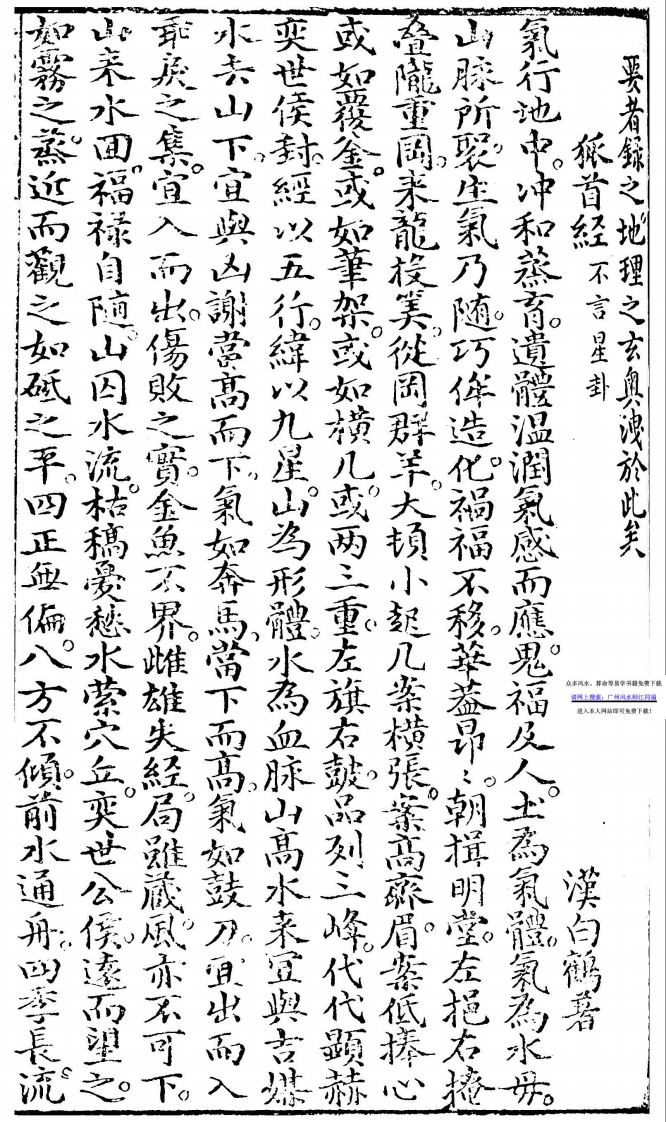 要者錄之地理之玄奥洩於此矣
狐首經 不言星卦 漢白鶴著
氣行地中。冲和蒸育。遺體温潤氣感而應。鬼福及人。土為氣體。氣為水母。
山脉所 生氣乃随。巧侔造化。禍福不移。華蓋昂〻。朝揖明堂。左挹右
叠隴重岡。来龍 從岡群羊。大頓小起几案横張。案高齊眉。案低捧心
或如覆釜。或如筆架。或如横几。或两三重。左旗右皷。品列三峰。代代顯赫
奕世侯封。經以五行。緯以九星。山為形體。水為血脉山高水来冝與吉媒
水去山下。宜與凶謝當高而下。氣如奔馬。當下而高。氣如鼓刀。冝出而入
乖戾之集。宜入而出。傷敗之實。金魚不界。雌雄失經。局雖藏風。亦不可下。
山来水囬。福禄自随。山囚水流。枯稿憂愁水縈穴丘。奕世公侯。遠而望之。
如霧之蒸近而觀之如砥之平。四正無偏。八方不傾。前水通舟。四季長流。
众多风水、算命等易学书籍免费下载
请网上搜索：广州风水师江同福
进入本人网站即可免费下载！